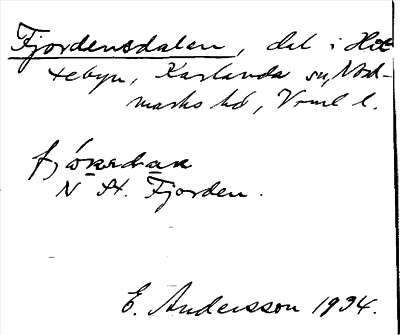 Fjordensdalen, dal i Höl-
tebyn, Karlanda sn, Nord-
marks hd, Vrml l.
N St. Fjorden.
E. Andersson 1934.